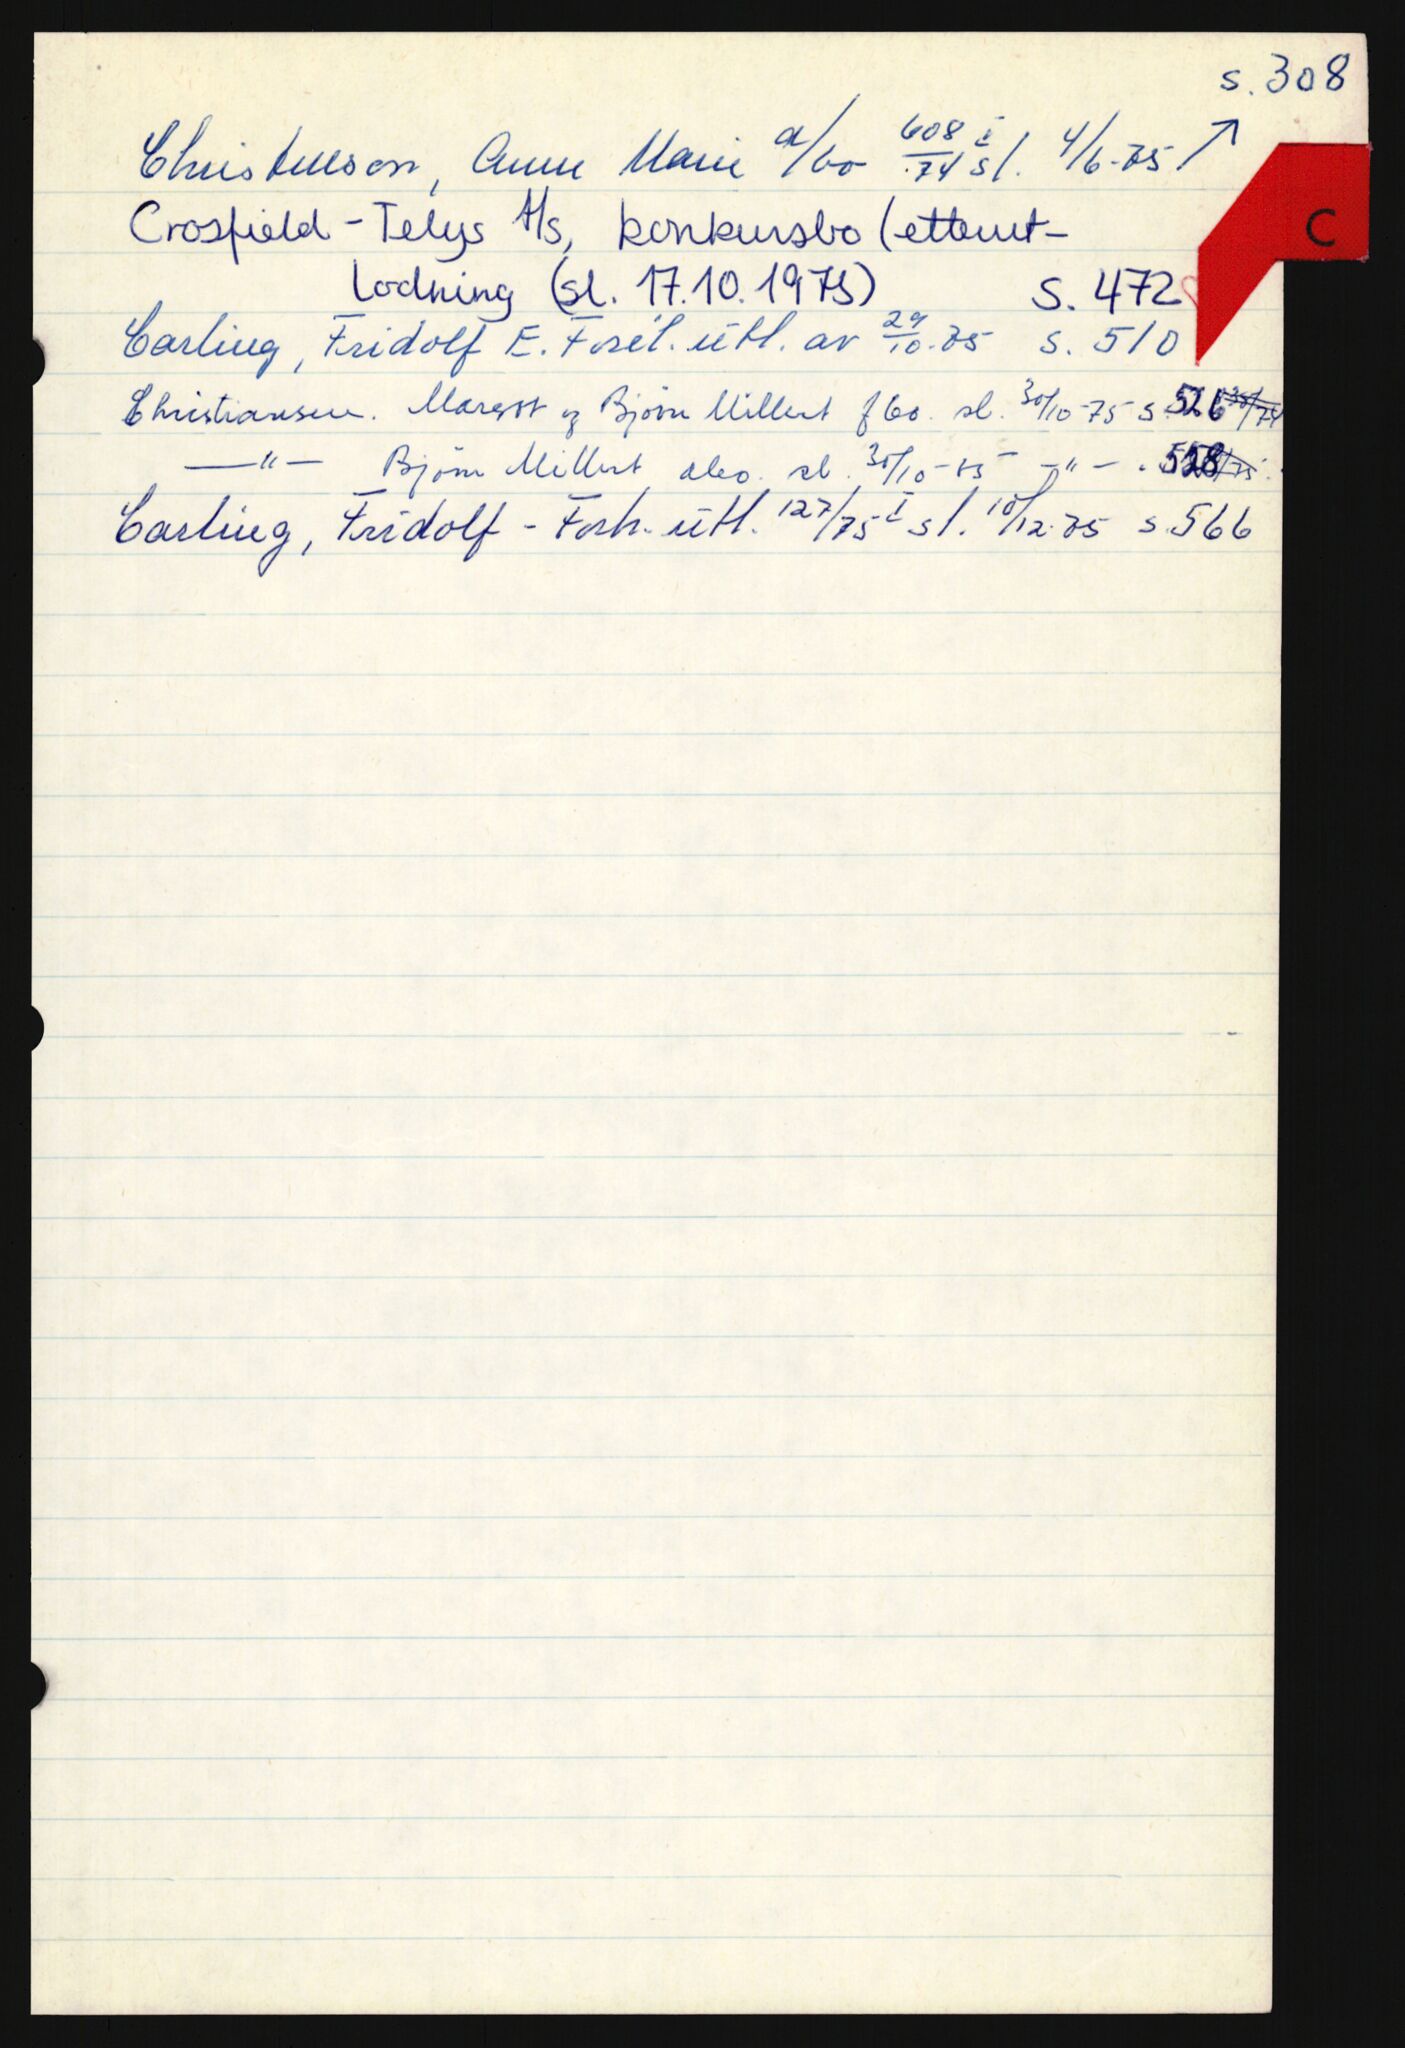 s. 308
Christenson, Anne Marie a/bo 608/74 I sl. 4/6-75 ↗
C
Crosfield - Telys A/S, konkursbo (etterut-
lodning (sl. 17.10.1975) s. 472
Carling, Fridolf E. Forel. utl. av 29/10-75 s. 510
Christiansen. Margot og Bjørn Millert f bo. sl. 30/10-75 s. 526
—"— Bjørn Millert, sl. 30/10-75 —"— 528
Carling, Fridolf - Forh. utl. 127/75 I sl. 10/12-75 s. 566